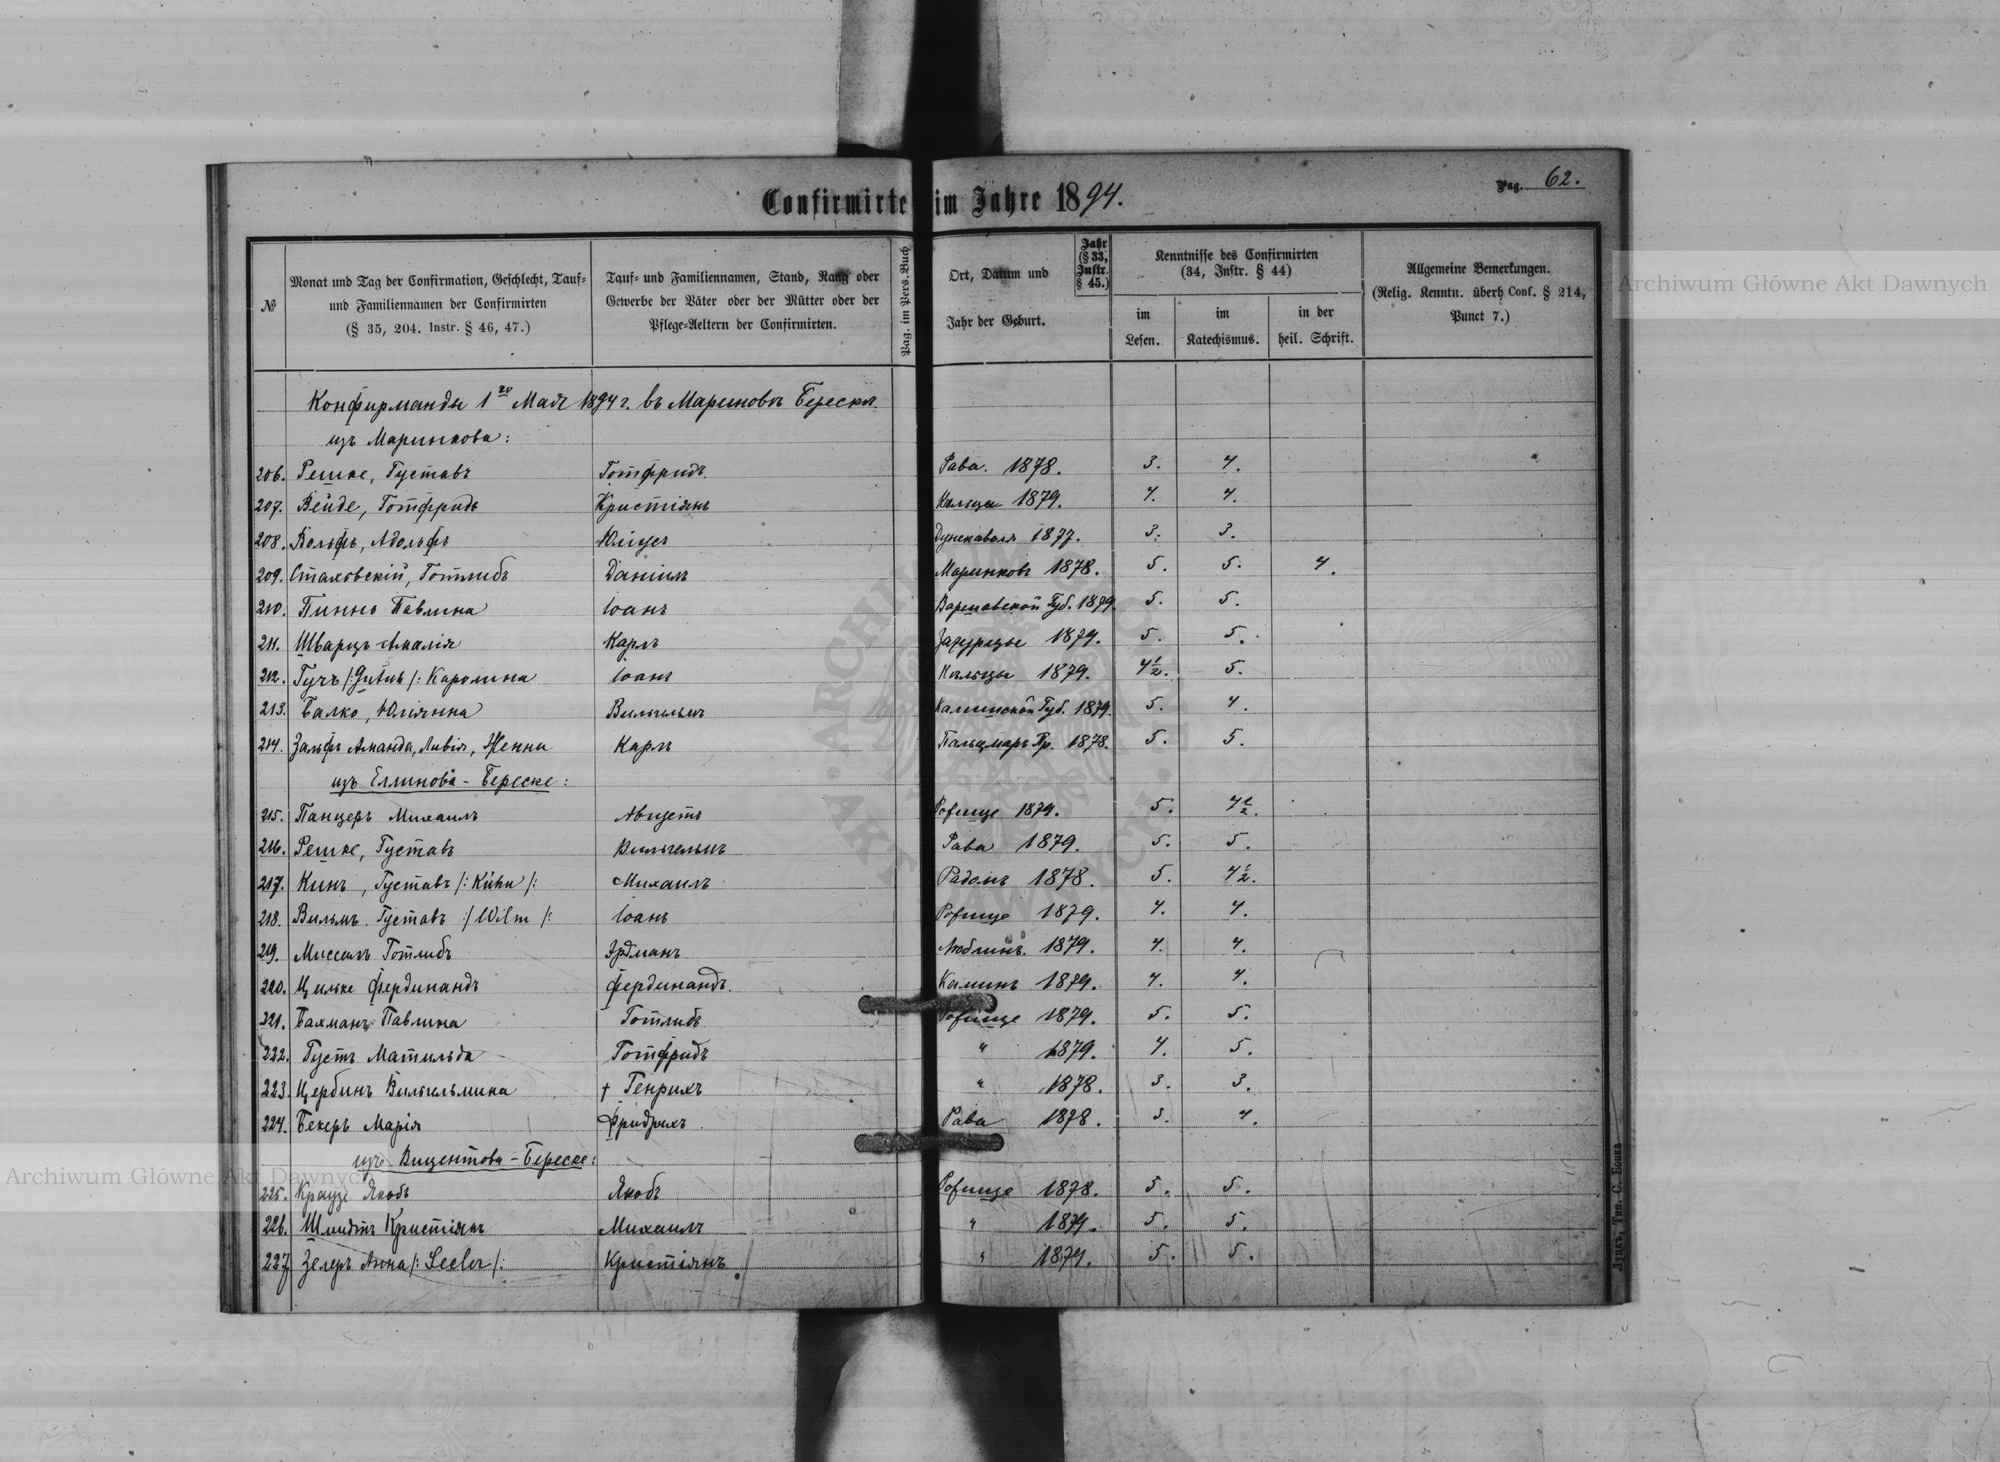 Pag. 62.
Confirmirte im Jahre 1894.
№
Monat und Tag der Confirmation, Geschlecht, Tauf- und Familiennamen der Confirmirten (§ 35, 204. Instr. § 46, 47.)
Tauf- und Familiennamen, Stand, Rang oder Gewerbe der Väter oder der Mütter oder der Pflege-Aeltern der Confirmirten.
Pag. im Pers.Buch
Ort, Datum und Jahr der Geburt.
Jahr (§ 33, Instr. § 45.)
Kenntnisse des Confirmirten (34, Instr. § 44)
im Lesen.
im Katechismus.
in der heil. Schrift.
Allgemeine Bemerkungen. (Relig. Kenntn. überh Conf. § 214, Punct 7.)
Конфирманды 1го Мая 1894 г. въ Мариновъ Береске.
изъ Маринкова:
206. Решке, Густавъ Готфридъ. Рава. 1878. 3. 4.
207. Вейде, Готфридъ Кристіянъ 1879. 4. 4.
208. Вольфъ, Адольфъ 1877. 3. 3.
209. Стаховскій, Готлибъ Даніилъ Маринковъ 1878. 5. 5. 4.
210. Пинно Павлина Іоанъ Варшавской Губ. 1879. 5. 5.
211. Шварцъ Амалія Карлъ 1879. 5. 5.
212. Гучъ Каролина Іоанъ Кѣльцы 1879. 4½. 5.
213. Балко, Юліянна Вильгельмъ Калишской Губ. 1879. 5. 4.
214. Зальфъ Аманда, Ливія, Женни Карлъ 1878. 5. 5.
изъ Еллинова - Береске:
215. Панцеръ Михаилъ Августъ Рожище 1879. 5. 4½.
216. Решке, Густавъ Вильгельмъ Рава 1879. 5. 5.
217. Кинъ, Густавъ /: Kühn /: Михаилъ Радомъ 1878. 5. 4½.
218. Вильмъ. Густавъ :/ Wilm /: Іоанъ Рожище 1879. 4. 4.
219. Миссалъ Готлибъ Эрдманъ Люблинъ. 1879. 4. 4.
220. Цильке Фердинандъ Фердинандъ. Калишъ 1879. 4. 4.
221. Бахманъ Павлина Готлибъ Рожище 1879. 5. 5.
222. Густъ Матильда Готфридъ " 1879. 4. 5.
223. Цербинъ Вильгельмина † Генрихъ " 1878. 3. 3.
224. Бекеръ Марія Фридрихъ Рава 1878. 3. 4.
изъ Вицентова - Береске:
225. Краузе Якобъ Якобъ Рожище 1878. 5. 5.
226. Шмидтъ Кристіянъ Михаилъ " 1879. 5. 5.
227. Зелеръ Анна /: Seeler /: Кристіянъ " 1879. 5. 5.
Луцкъ, Тип. С. Бонка
Archiwum Główne Akt Dawnych
Archiwum Główne Akt Dawnych